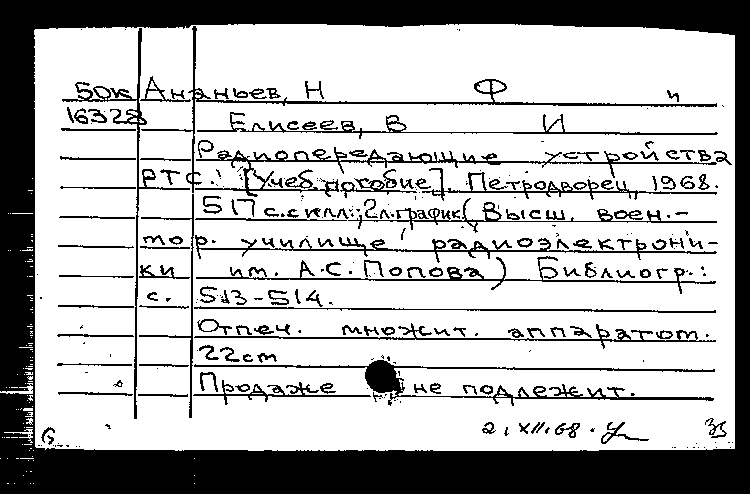 50к Ананьев, Н Ф и
16328 Елисеев, В И
Радиопередающие устройства
РТС. [Учеб. пособие]. Петродворец, 1968.
517 с. с илл.; 2 л. график (Высш. воен.-
мор. училище радиоэлектрони-
ки им. А.С. Попова) Библиогр.:
с. 513-514.
Отпеч. множит. аппаратом.
22cm
Продаже не подлежит.
2.XII.68.